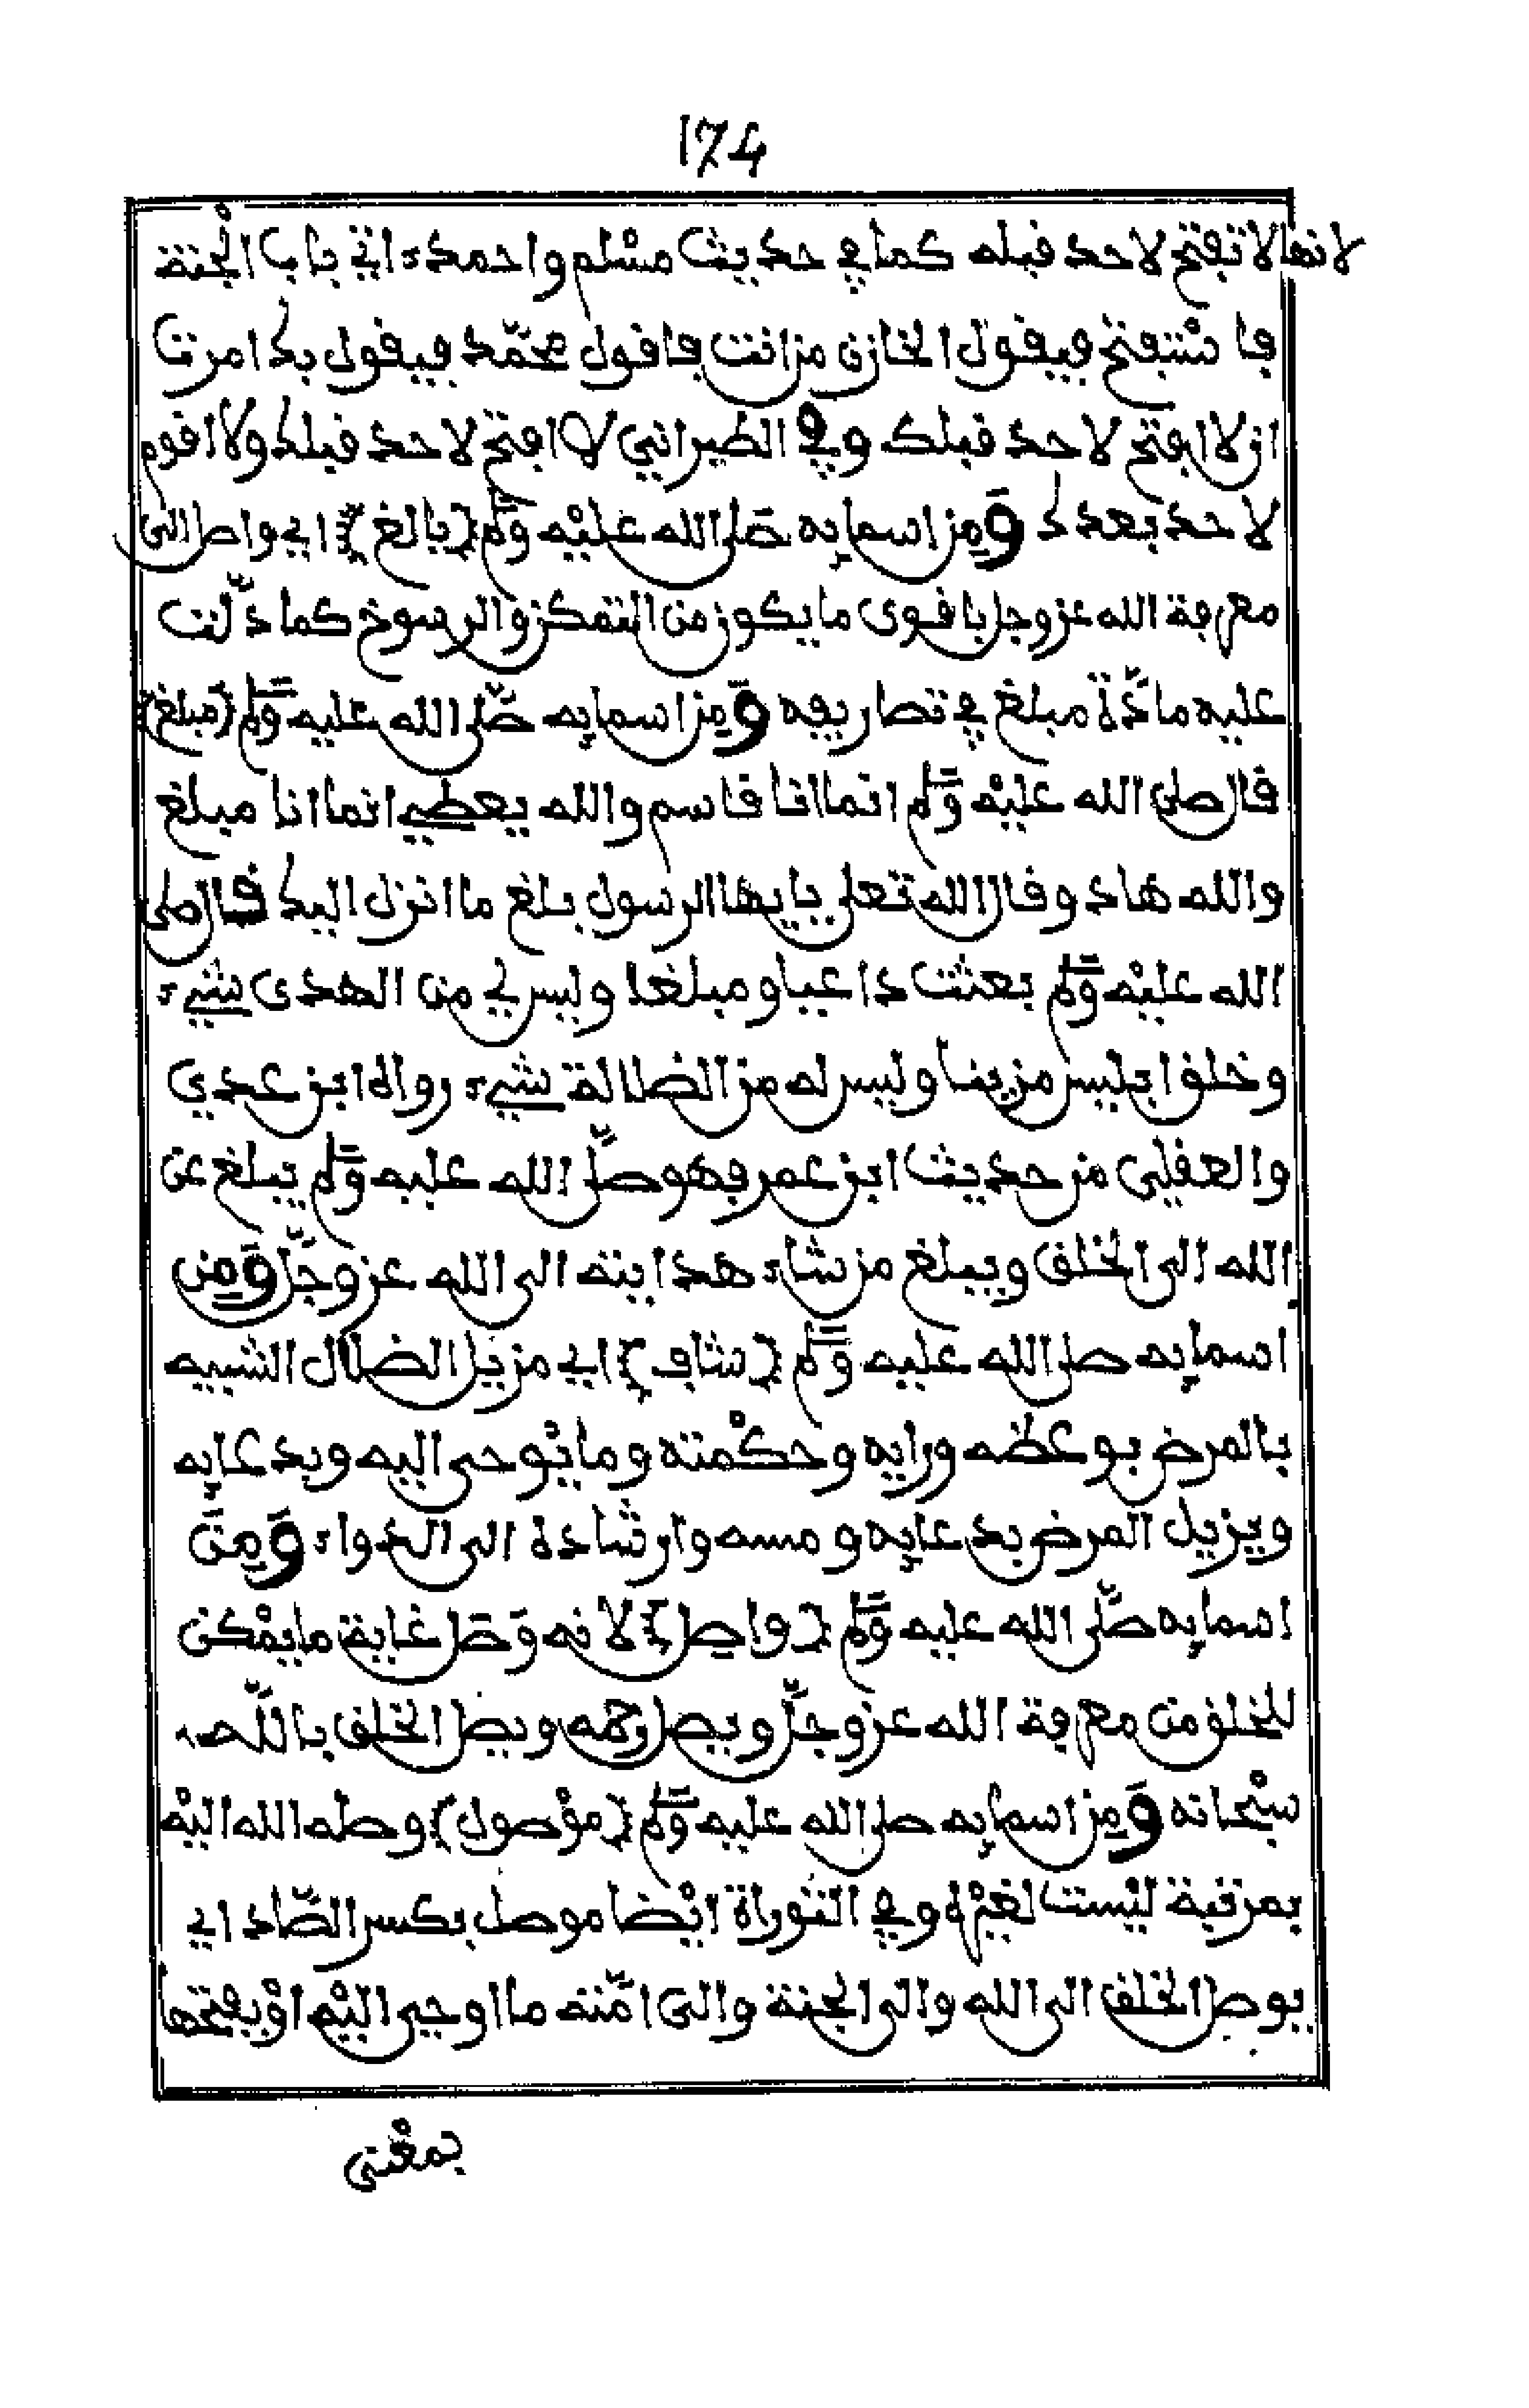 174
لانها لا تفتح لاحد قبله كما في حديث مسلم واحمد ءاتي باب الجنة
فاستفتح فيقول الخازن من انت فاقول محمد فيقول بك امرت
ان لا افتح لاحد قبلك وفي الطبراني لا افتح لاحد قبلك ولا اقوم
لاحد بعدك ومن اسمايه صلى الله عليه وسلم {بالغ} اي واصل الى
معرفة الله عز وجل باقوى ما يكون من التمكن والرسوخ كما دلت
عليه مادة مبلغ في تصاريفه ومن اسمايه صلى الله عليه وسلم {مبلغ}
قال صلى الله عليه وسلم انما انا قاسم والله يعطي انما انا مبلغ
والله هاد وقال الله تعلى يايها الرسول بلغ ما انزل اليك قال صلى
الله عليه وسلم بعثت داعيا ومبلغا وليس لي من الهدى شيء
وخلق ابليس مزينا وليس له من الضلالة شيء رواه ابن عدي
والعقيلي من حديث ابن عمر فهو صلى الله عليه وسلم يبلغ عن
الله الى الخلق ويبلغ من شاء هدايته الى الله عز وجل ومن
اسمايه صلى الله عليه وسلم {شاف} اي مزيل الضلال الشبيه
بالمرض بوعظه ورايه وحكمته وما يوحى اليه وبدعايه
ويزيل المرض بدعايه ومسه وارشاده الى الدواء ومن
اسمايه صلى الله عليه وسلم {واصل} لانه وصل غاية ما يمكن
للخلق من معرفة الله عز وجل ويصل رحمه ويصل الخلق بالله
سبحانه ومن اسمايه صلى الله عليه وسلم {موصول} وصله الله اليه
بمرتبة ليست لغيره وفي التوراة ايضا موصل بكسر الصاد اي
يوصل الخلق الى الله والى الجنة والى امته ما اوحي اليه او بفتحها
بمعنى